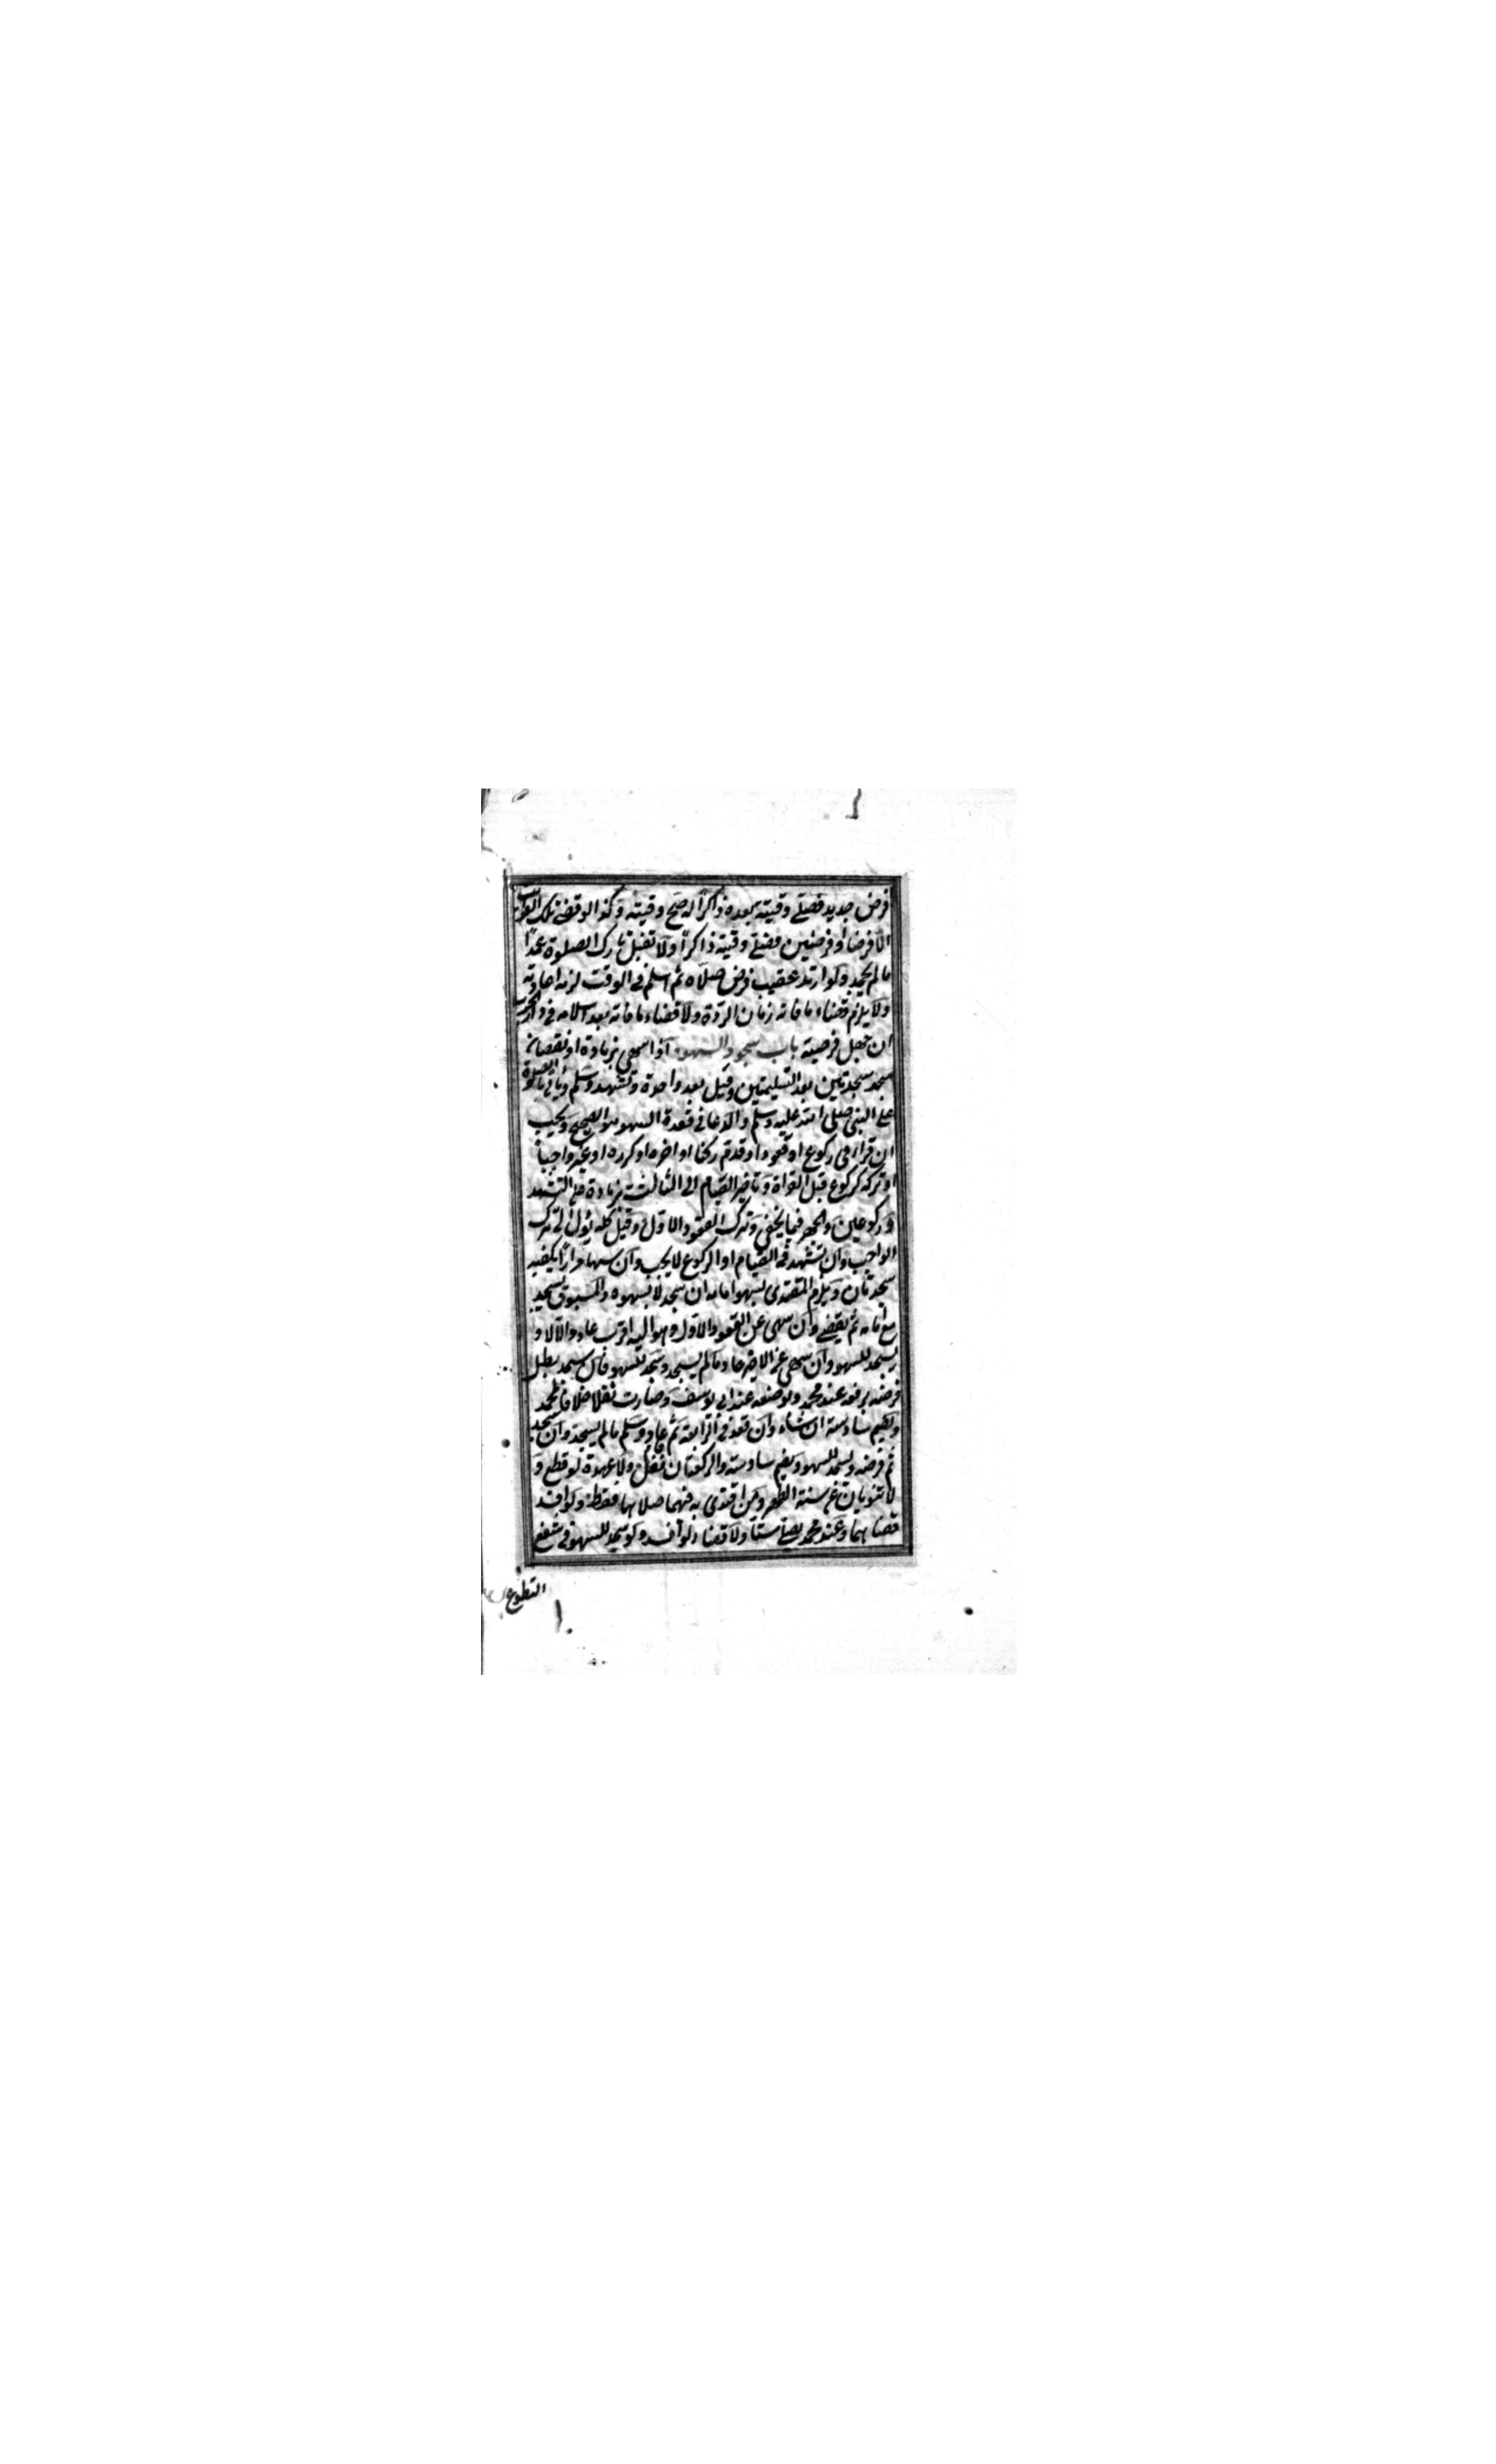 فرض جديد فصلى وقتية بعده ذاكرا له صح وقتيته وكذا لو قضى تلك الفوائت
الا فرضا او فرضين فصلى وقتية ذاكرا ولا تقبل تارك الصلوة عمدا
ما لم يجحد ولو ارتد عقيب فرض صلاه ثم اسلم في الوقت لزمه اعادته
ولا يلزم قضاء ما فاته زمان الردة ولا قضاء ما فاته بعد اسلامه في دار الحرب
ان جهل فرضيته باب سجود السهو اذا سهى بزيادة او نقصان
سجد سجدتين بعد التسليمتين وقيل بعد واحدة وتشهد وسلم وياتي بالصلوة
على النبي صلى الله عليه وسلم والدعا في قعدة السهو هو الصحيح ويجب
ان قراء في ركوع او قعود او قدم ركنا او اخره او كرره او غير واجبا
او تركه كركوع قبل القراة وتاخير القيام الى الثالثة بزيادة على التشهد
وركوعين والجهر فيما يخفى وترك القعود الاول وقيل كله يؤل الى ترك
الواجب وان تشهد في القيام او الركوع لا يجب وان سها مرارا يكفيه
سجدتان ويلزم المقتدى بسهو امامه ان سجد لا بسهوه والمسبوق يسجد
مع امامه ثم يقضي وان سهى عن القعود الاول وهو اليه اقرب عاد والا لا و
يسجد للسهو وان سهى عن الاخير عاد ما لم يسجد وسجد للسهو فان سجد بطل
فرضه برفعه عند محمد وبوضعه عند ابي يوسف وصارت نفلا خلافا لمحمد
ويضم سادسة ان شاء وان قعد في الرابعة ثم قام عاد وسلم ما لم يسجد وان سجد
تم فرضه ويسجد للسهو ويضم سادسة والركعتان نفل ولا عهدة لو قطع و
لا تنوبان عن سنة الظهر ومن اقتدى به فيهما صلاهما فقط ولو افسد
قضاهما وعند محمد يصلي ستا ولا قضاء لو افسد ولو سجد للسهو في شفع
التطوع